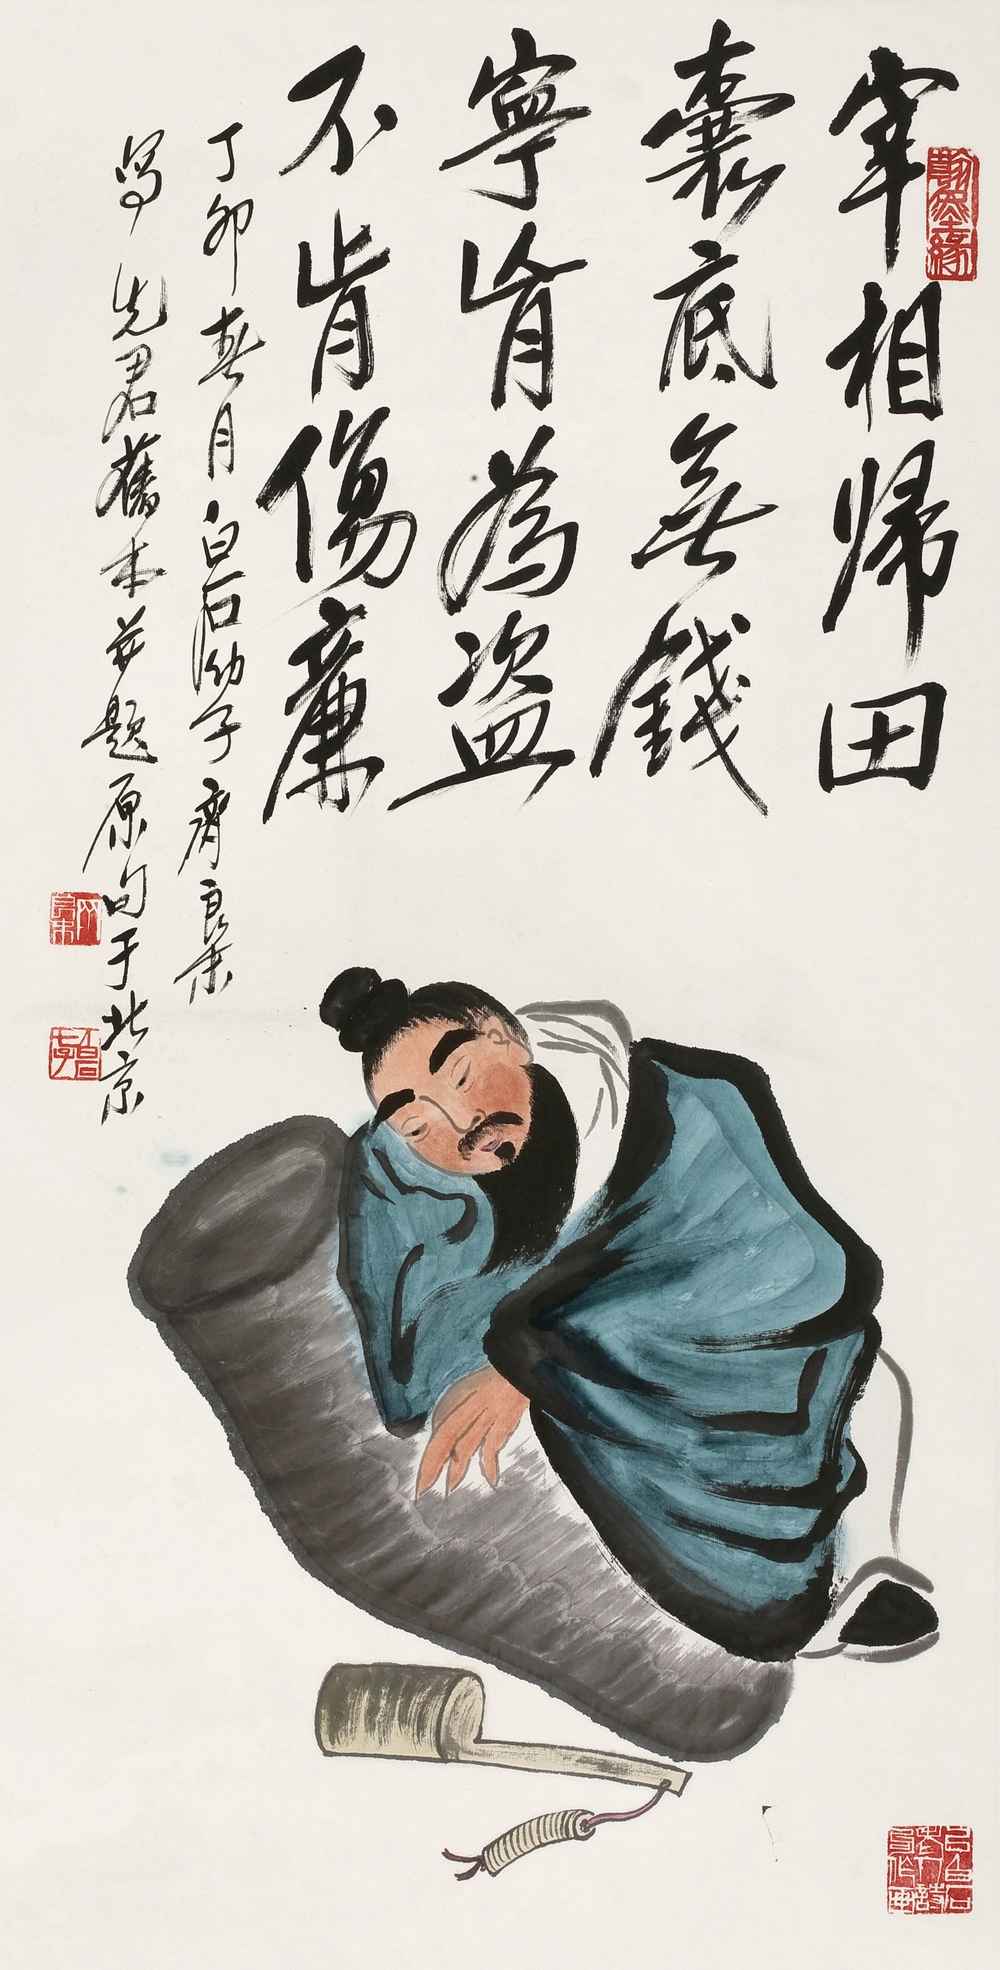 宰相归田
囊底無錢
寧肯為盗
不肯傷廉
丁卯春月白石幼子齊良末
写先君舊本并題原句于北京